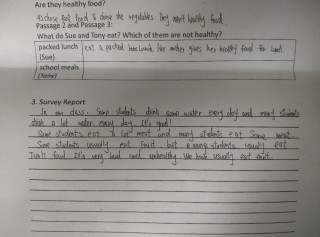 Are they healthy food?
fast food & some the vegetables. They aren't healthy food.
Passage 2 and Passage 3:
What do Sue and Tony eat? Which of them are not healthy?
packed lunch eat a packed lunch. Her mother gives her healthy food for lunch.
(Sue)
school meals
(Tony)
3. Survey Report
In our class. Some students drink some water every day and many students
drink a lot water every day. It's good!
Some students eat a lot meat and many students eat some meat.
Some students usually eat fruit but a many students usually eat
food. It's very bad and unhealthy. We have usually eat